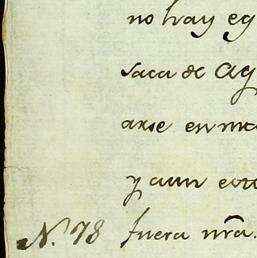 no hay eg
saca de Ag
arse en mo
y aun esto
N. 78 fuera nra.